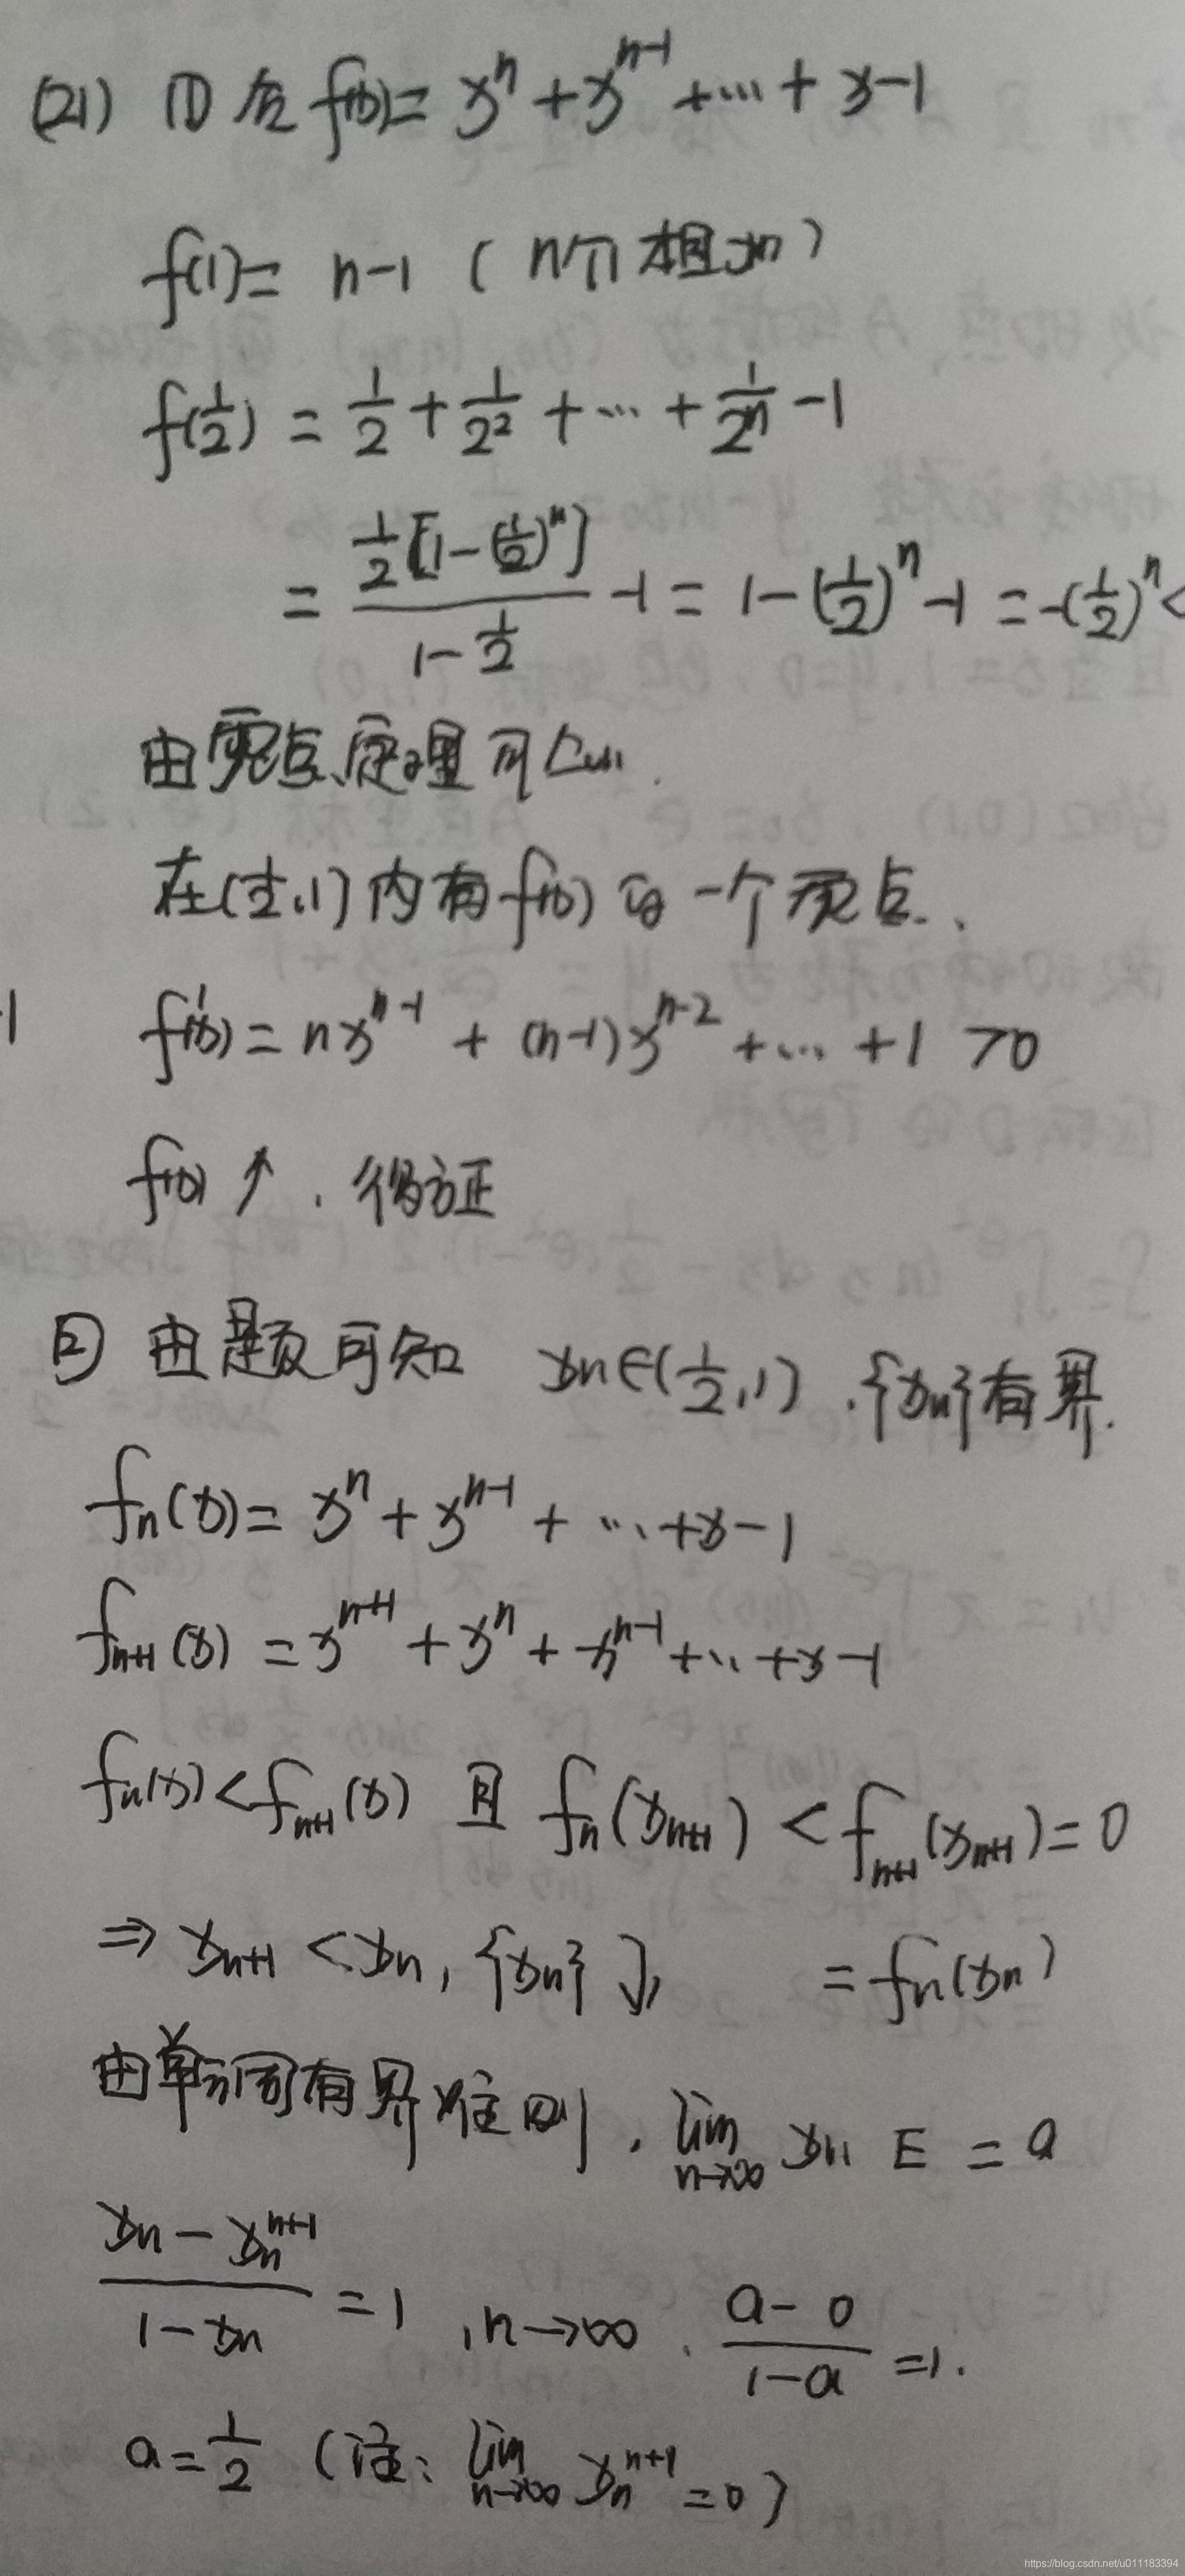 (21) ① 令 f(x) = x^n + x^{n-1} + ... + x - 1
f(1) = n-1 ( n个1相加 )
f(1/2) = 1/2 + 1/2^2 + ... + 1/2^n - 1
= \frac{1/2[1-(1/2)^n]}{1-1/2} - 1 = 1-(1/2)^n - 1 = -(1/2)^n <
由零点定理可知.
在(1/2,1)内有f(x)的一个零点.
-1
f'(x) = nx^{n-1} + (n-1)x^{n-2} + ... + 1 > 0
f(x)↑. 得证
② 由题可知 xn∈(1/2,1). {xn}有界.
fn(x) = x^n + x^{n-1} + ... + x - 1
f_{n+1}(x) = x^{n+1} + x^n + x^{n-1} + ... + x - 1
fn(x) < f_{n+1}(x) 且 fn(x_{n+1}) < f_{n+1}(x_{n+1}) = 0
⇒ x_{n+1} < xn, {xn}↓, = fn(xn)
由单调有界准则, lim_{n→∞} xn E = a
\frac{xn - xn^{n+1}}{1 - xn} = 1, n→∞. \frac{a-0}{1-a} = 1.
a = 1/2 (注: lim_{n→∞} xn^{n+1} = 0)
https://blog.csdn.net/u011183394